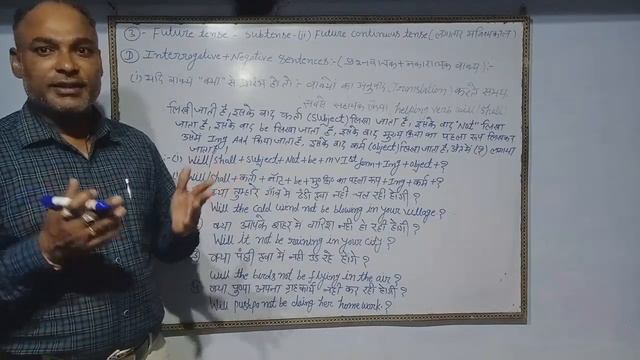 ③- Future tense - subtense-(ii) Future continuous tense (लगातार भविष्यकाल)
Ⓓ Interrogative + Negative sentences:- (प्रश्नवाचक + नकारात्मक वाक्य):-
(i) यदि वाक्य "क्या" से प्रारंभ हो तो:- वाक्यों का अनुवाद (Translation) करते समय
सबसे सहायक क्रिया helping verb will/shall
लिखी जाती है, इसके बाद कर्ता (subject) लिखा जाता है, इसके बाद "Not" लिखा
जाता है, इसके बाद be लिखा जाता है, इसके बाद मुख्य क्रिया का पहला रूप लिखकर
उसमें Ing Add किया जाता है, इसके बाद कर्म (object) लिखा जाता है, अंत में (?) लगाया
जाता है।
:-(1) Will/shall + subject + Not + be + m V Ist form + Ing + object + ?
Will/shall + कर्ता + नॉट + be + मु० क्रि० का पहला रूप + Ing + कर्म + ?
क्या तुम्हारे गांव में ठंडी हवा नहीं चल रही होगी ?
Will the cold wend not be blowing in your village ?
② क्या आपके शहर में बारिश नहीं हो रही होगी ?
Will it not be raining in your city ?
③ क्या पंछी हवा में नहीं उड़ रहे होंगे ?
Will the birds not be flying in the air ?
④ क्या पुष्पा अपना गृहकार्य नहीं कर रही होगी ?
Will pushpa not be doing her home work ?